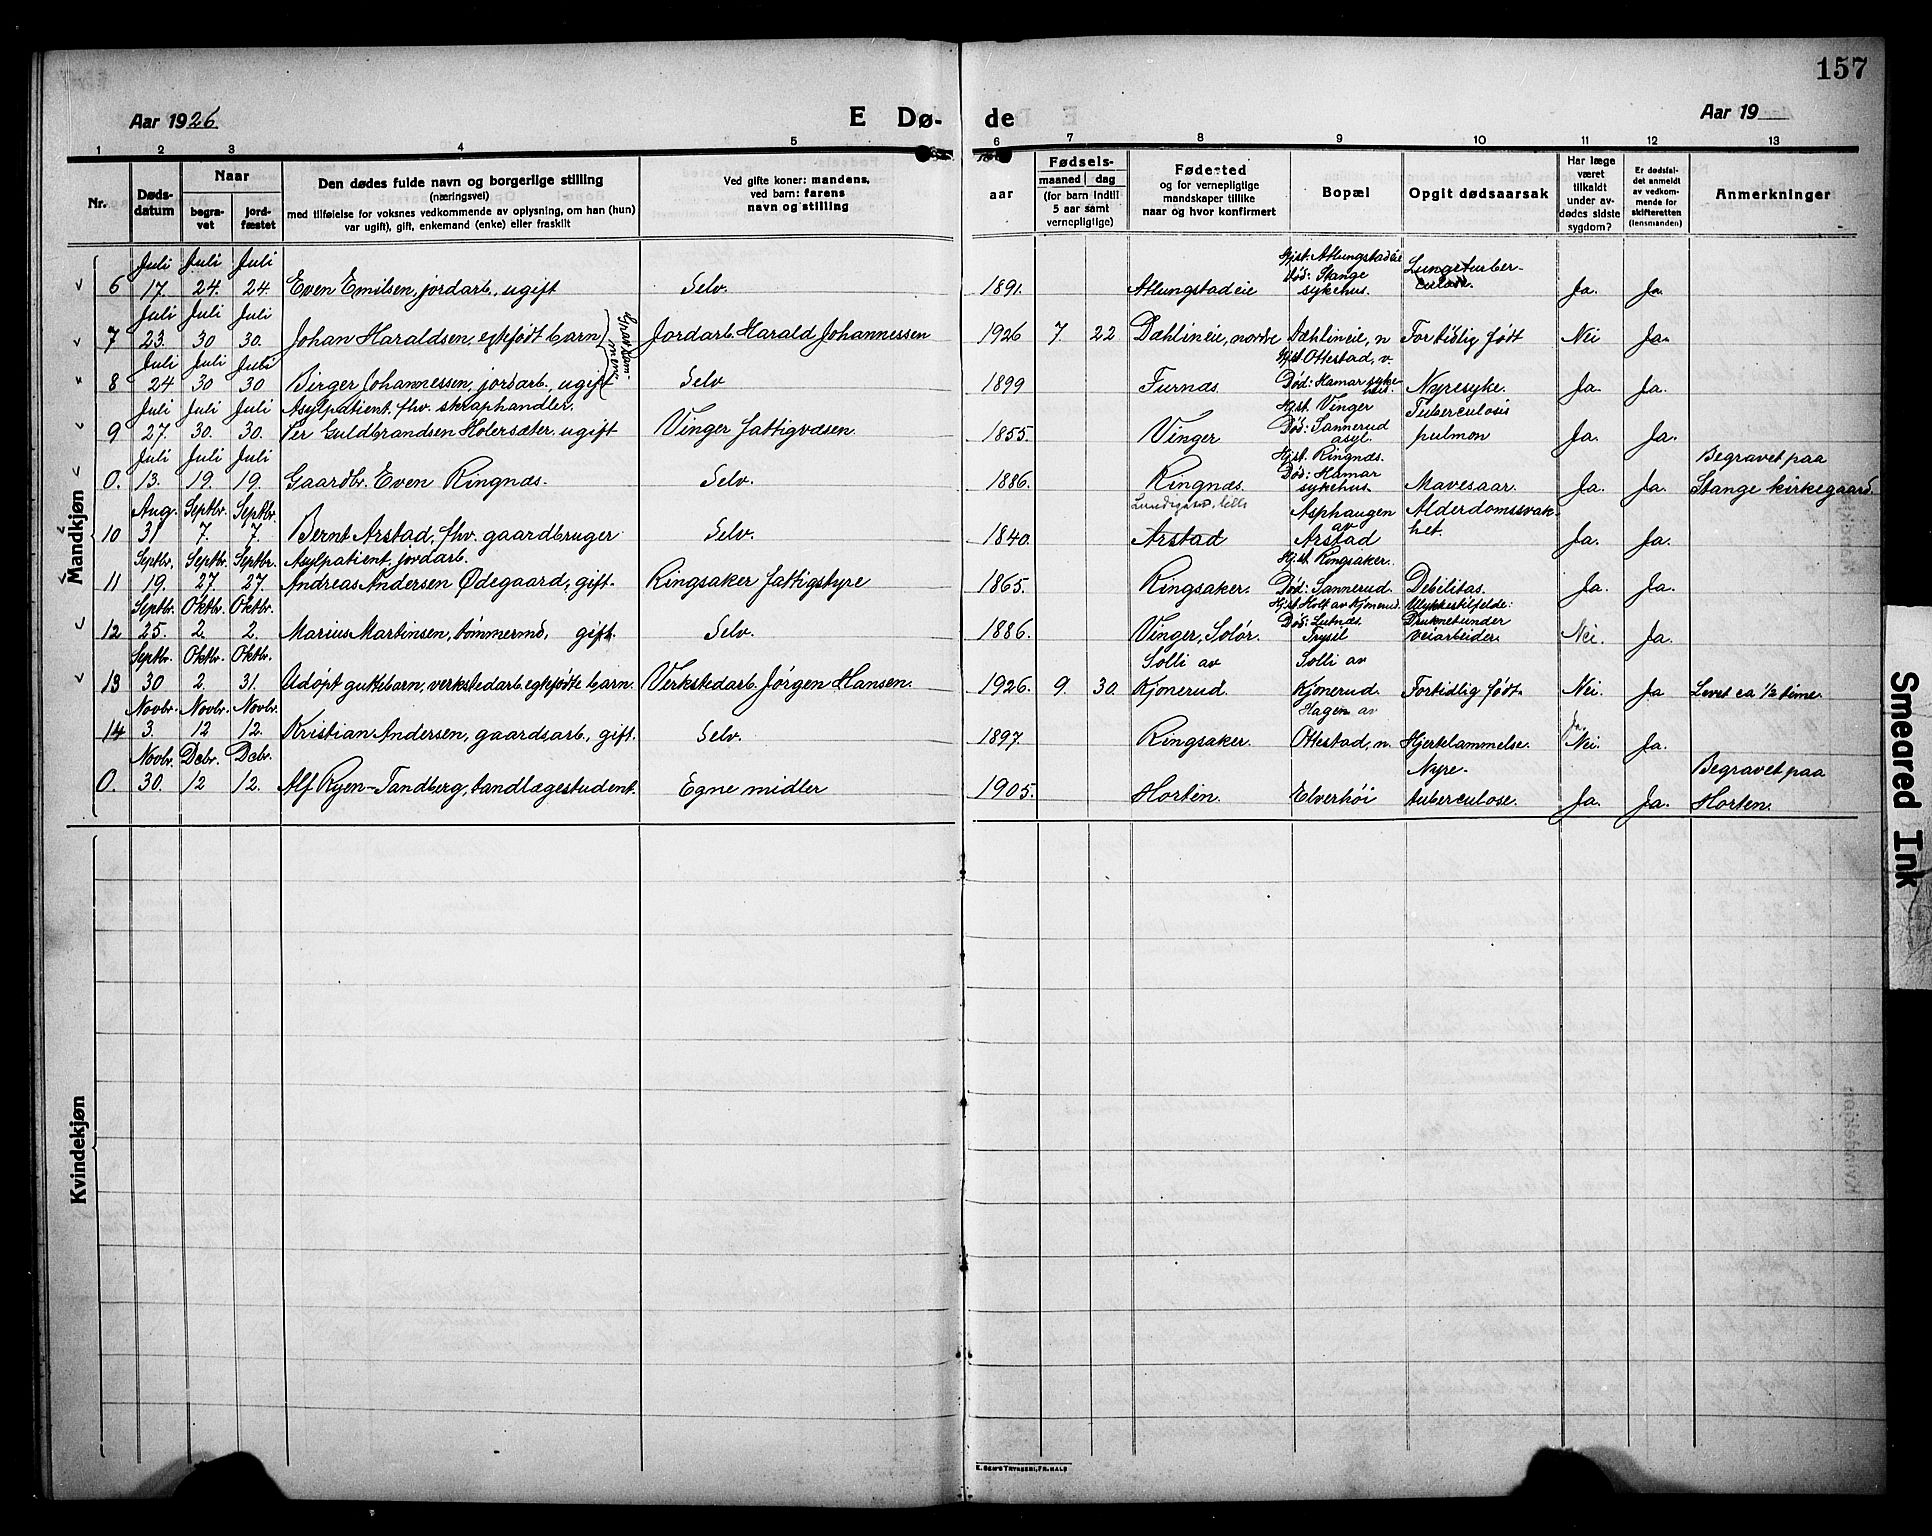 157
Aar 1926 E Dø- de Aar 19
1 2 3 4 5 6 7 8 9 10 11 12 13
Nr. Døds-datum Naar begra-vet jord-fæstet Den dødes fulde navn og borgerlige stilling (næringsvei) med tilføielse for voksnes vedkommende av oplysning, om han (hun) var ugift), gift, enkemand (enke) eller fraskilt Ved gifte koner: mandens, ved barn: farens navn og stilling aar Fødsels- maaned dag (for barn indtil 5 aar samt vernepligtige) Fødested og for vernepligtige mandskaper tillike naar og hvor konfirmert Bopæl Opgit dødsaarsak Har læge været tilkaldt under av-dødes sidste sygdom? Er dødsfal-det anmeldt av vedkom-mende for skifteretten (lensmanden) Anmerkninger
Mandkjøn
Juli Juli Juli Hjst. Atlungstadeie Lungetuber-
6 17. 24. 24 Even Emilsen, jordarb., ugift Selv. 1891. Atlungstadeie Død: Stange sykehus. culose. Ja. Ja
Juli Juli Juli
7 23. 30 30. Johan Haraldsen, egtefødt barn Jordarb. Harald Johannessen 1926 7. 22 Dæhlineie, nordre Dæhlineie, n For tidlig født Nei Ja.
Juli Juli Juli Hjst. Ottestad, v.
8 24 30 30 Birger Johannessen, jordarb., ugift Selv 1899 Furnæs Død: Hamar sykehus. Nyresyke. Ja. Ja.
Juli Juli Juli Asylpatient, fhv. skraphandler. Hjst. Vinger Tuberculosis
9 27. 30. 30. Per Guldbrandsen Holersæter, ugift Vinger fattigvæsen 1855. Vinger Død: Sannerud asyl. pulmon Ja. Ja.
Juli Juli Juli Hjst. Ringnæs. Begravet paa
0. 13. 19. 19. Gaardbr. Even Ringnæs. Selv. 1886. Ringnæs. Død: Hamar sykehus. Mavesaar. Ja. Ja. Stange kirkegaard.
Aug. Septbr. Septbr. Asphaugen Alderdomssvak-
10 31 7. 7. Bernt Arstad, fhv. gaardbruger Selv. 1840. Arstad av Arstad het. Ja. Ja.
Septbr. Septbr. Septbr. Asylpatient, jordarb. Hjst. Ringsaker.
11 19. 27 27. Andreas Andersen Ødegaard, gift. Ringsaker fattigstyre 1865. Ringsaker. Død: Sannerud. Debilitas. Ja. Ja.
Septbr. Oktbr. Oktbr. Hjst. Holt av Kjonerud. Ulykkestilfelde:
12 25. 2. 2. Marius Martinsen, tømmermd, gift. Selv. 1886. Vinger, Solør. Død: Lutnæs. Trysil Druknet under veiarbeider. Nei. Ja.
Septbr. Oktbr. Oktbr. Solli av Solli av
13 30 2. 31. Udøpt guttebarn, verkstedarb. egtefødte barn. Verkstedarb. Jørgen Hansen. 1926 9. 30. Kjonerud. Kjonerud. For tidlig født. Nei. Ja Levet ca 1/2 time.
Novbr. Novbr. Novbr. Hagen av
14 3. 12 12. Kristian Andersen, gaardsarb., gift. Selv. 1897 Ringsaker. Ottestad, n. Hjerklammelse. Nei. Ja.
Novbr. Decbr. Decbr. Nyre- Begravet paa
0. 30. 12 12. Alf Ryen-Tandberg, tandlægestudent. Egne midler 1905. Horten. Elverhøi tuberculose. Ja. Ja. Horten.
Kvindekjøn
Smeared Ink